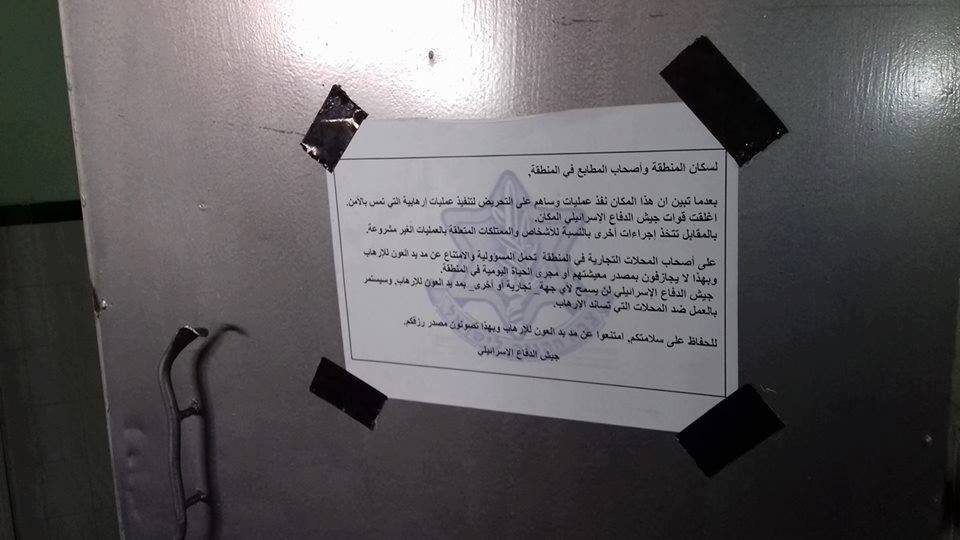 لسكان المنطقة وأصحاب المطابع في المنطقة,
بعدما تبين ان هذا المكان نفذ عمليات وساهم على التحريض لتنفيذ عمليات إرهابية التي تمس بالأمن.
اغلقت قوات جيش الدفاع الإسرائيلي المكان.
بالمقابل تتخذ إجراءات أخرى بالنسبة للأشخاص والممتلكات المتعلقة بالعمليات الغير مشروعة.
على أصحاب المحلات التجارية في المنطقة تحمل المسؤولية والامتناع عن مد يد العون للإرهاب
وبهذا لا يجازفون بمصدر معيشتهم أو مجرى الحياة اليومية في المنطقة.
جيش الدفاع الإسرائيلي لن يسمح لأي جهة_ تجارية أو أخرى_ بمد يد العون للإرهاب, وسيستمر
بالعمل ضد المحلات التي تساند الارهاب.
للحفاظ على سلامتكم, امتنعوا عن مد يد العون للإرهاب وبهذا تصونون مصدر رزقكم.
جيش الدفاع الإسرائيلي